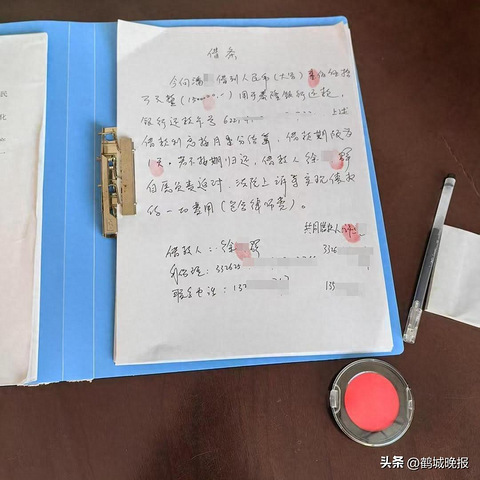 借条
今向潘 借到人民币(大写)壹佰伍拾
万元整(1500000.-)用于泰隆银行还款,
银行还款卡号 622 上述
借款利息按月 分结算,借款期限为
1 若不按期归还,借款人徐 辉
自愿负责追讨、法院上诉等实现债权
的一切费用(包含律师费)。
共同借款人
借款人:徐 辉 3326
身份证:332625
联系电话:13 135
民
北
头条 @鹤城晚报